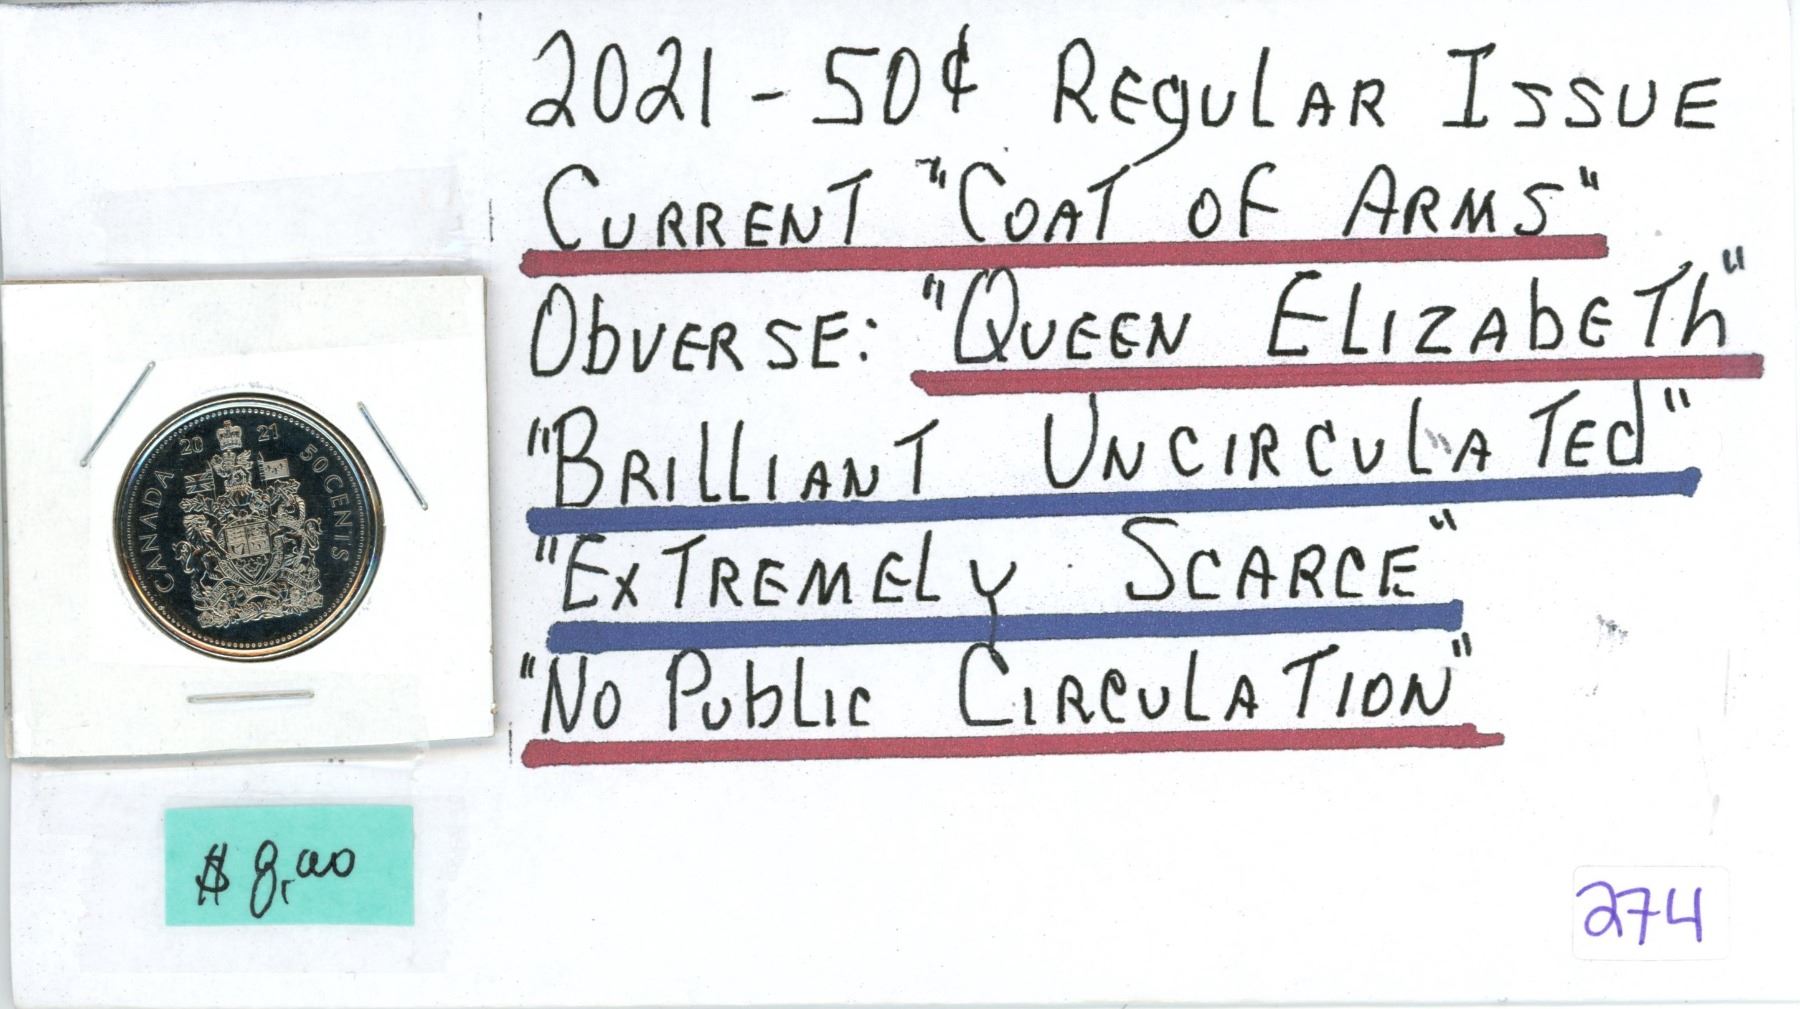 2021 - 50¢ REgULAR ISSUE
CURRENT "COAT OF ARMS"
ObVERSE: "QUEEN ELIZAbETh"
"BRILLIANT UNCIRCULATEd"
"ExTREMELy SCARCE"
"No PUbLIC CIRCULATION"
CANADA 2021 50 CENTS
$8.00
274